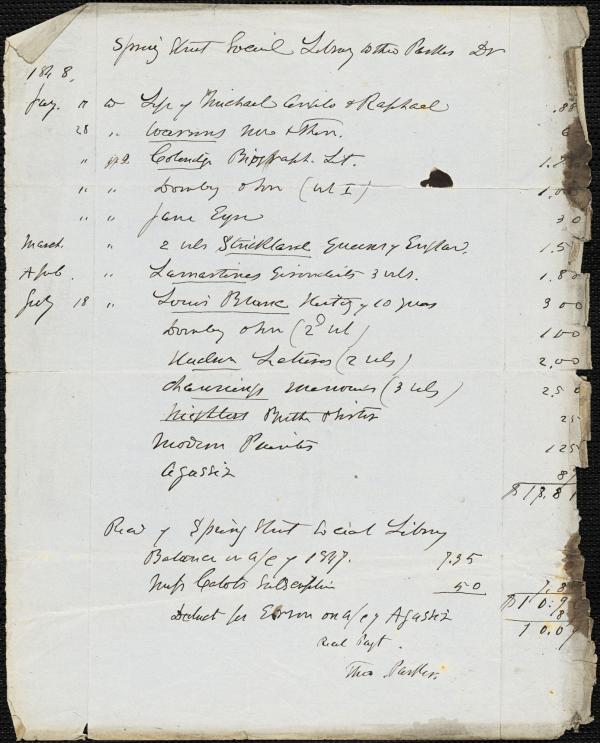 Spring Street Social Library to Theo Parker Dr
1848.
Jay. 11 to Life of Michael Angelo & Raphael .88
28 " Warrens & Then. 6
" Coleridge Biograph. Lit. 1.
" " Domby & Son (vol I) 1.00
" " Jane Eyre 30
March. " 2 vols Strickland Queens of Englan. 1.5
April. " Lamartines Girondists 3 vols. 1.80
July 18 " Louis Blanc History of 10 years 3 00
Domby & Son (2d vol) 1 00
Letters (2 vols) 2.00
Channings Memoirs (3 vols) 2.50
Brother & Sister 25
Modern Painters 1 25
Agassiz 8
$18.81
Recd of Spring Street Social Library
Balance on a/c of 1847. 7.35
Miss Cabots Subscription 50 7.8
$10.9
Deduct for Error on a/c of Agassiz
10.0
Recd Payt.
Theo Parker.